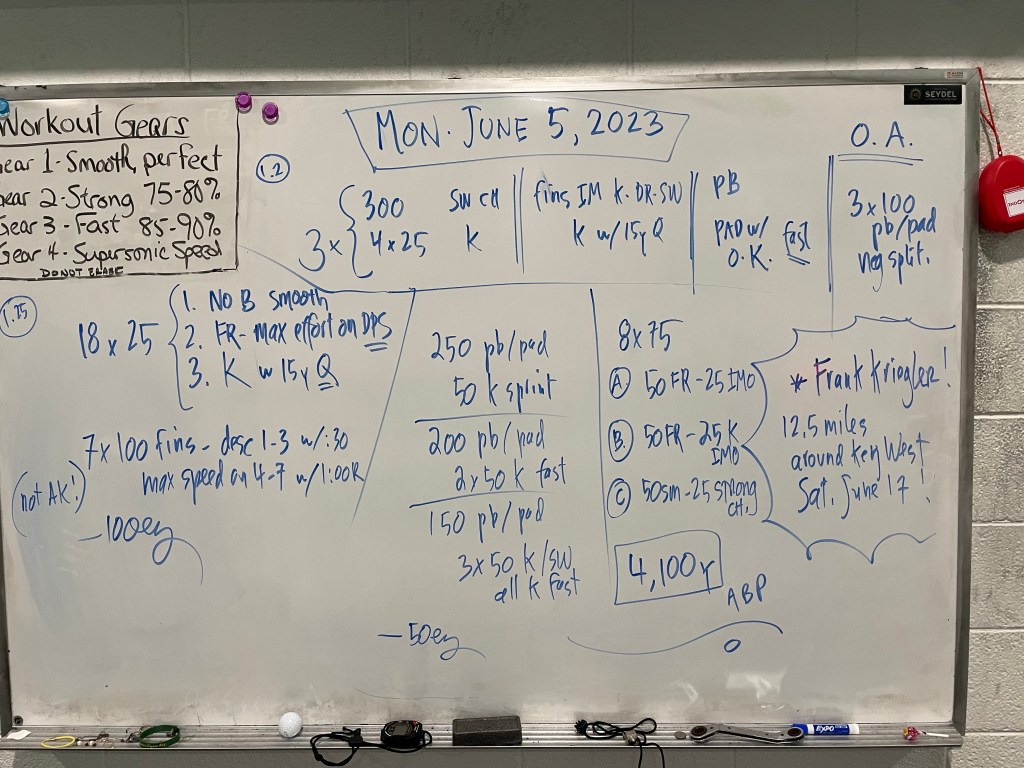 Workout Gears
Gear 1 - Smooth, perfect
Gear 2 - Strong 75-80%
Gear 3 - Fast 85-90%
Gear 4 - Supersonic Speed
DO NOT ERASE
SEYDEL
MON. JUNE 5, 2023
1.2
3 x
300 SW CH
4 x 25 K
fins IM K-DR-SW
K w/15y Q
PB
PAD w/
O.K. fast
O.A.
3 x 100
pb/pad
neg split.
1.75
18 x 25
1. No B smooth
2. FR - max effort on DPS
3. K w 15y Q
7 x 100 fins - desc 1-3 w/:30
max speed on 4-7 w/1:00R
(not AK!)
- 100ey
250 pb/pad
50 k sprint
200 pb/pad
2 x 50 k fast
150 pb/pad
3 x 50 K/SW
all k fast
- 50ey
8 x 75
A 50 FR - 25 IMO
B 50 FR - 25 K
IMO
C 50 sm - 25 strong
CH.
4,100y
ABP
* Frank Kriegler!
12.5 miles
around Key West
Sat. June 17!
EXPO